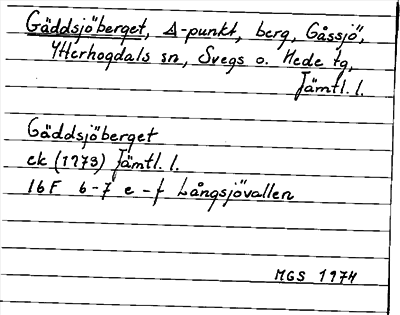 Gäddsjöberget, Δ-punkt, berg, Gåssjö,
Ytterhogdals sn, Svegs o. Hede tg,
Jämtl. l.
Gäddsjöberget
ek (1973) Jämtl. l.
16F 6-7 e-f Långsjövallen
MGS 1974